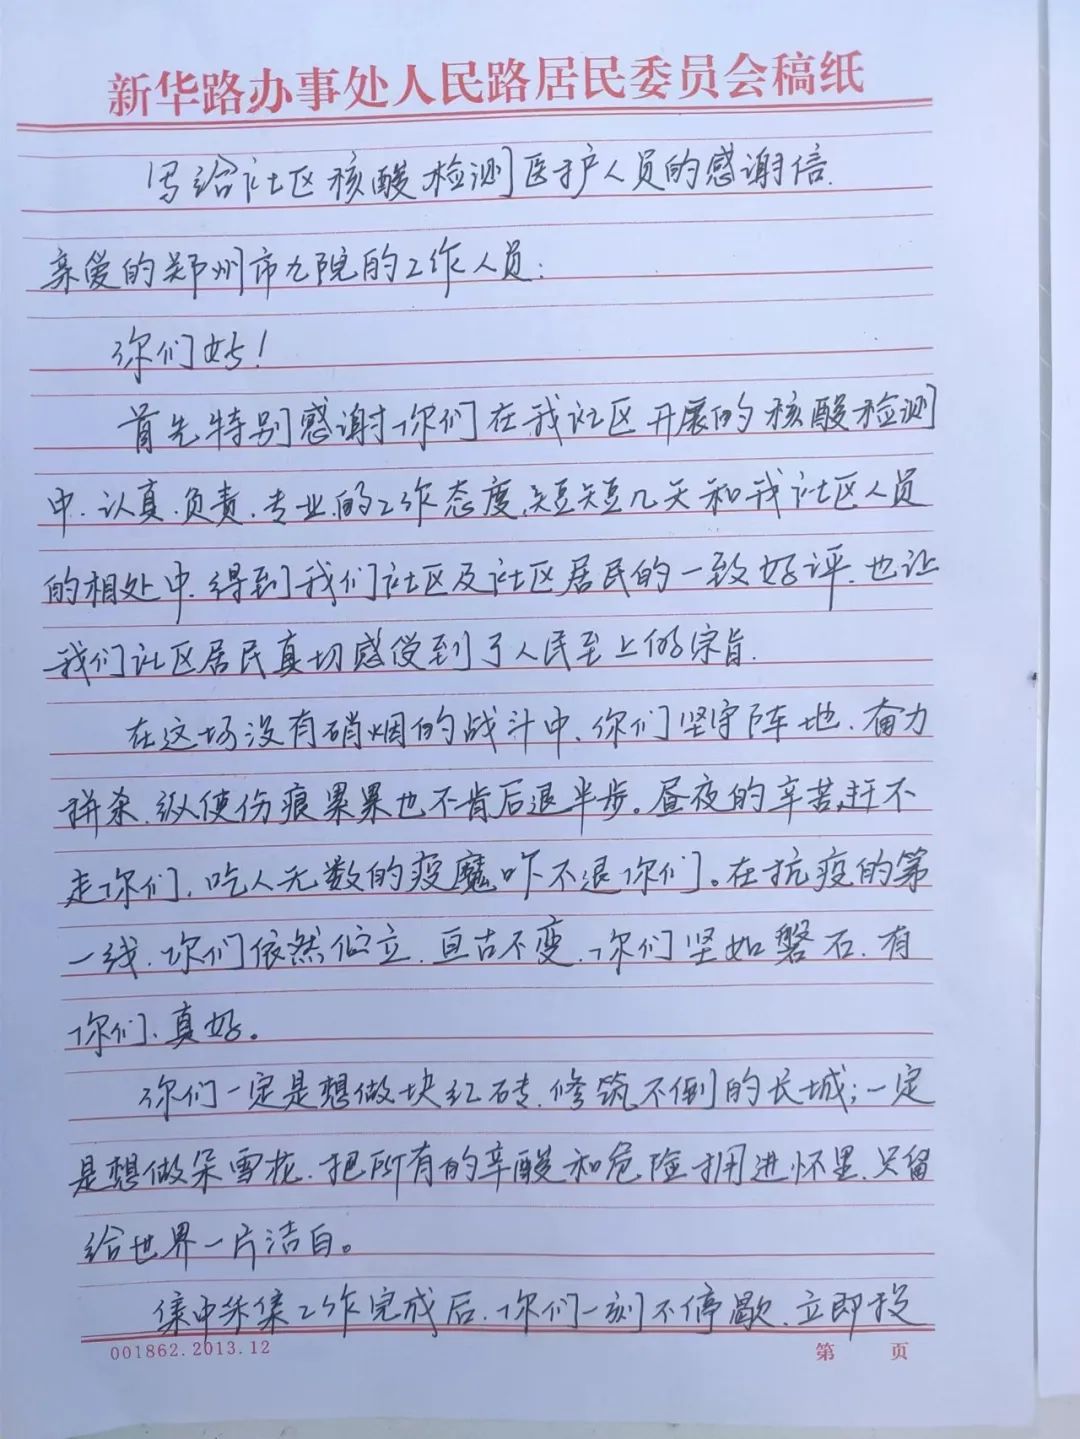 新华路办事处人民路居民委员会稿纸
写给社区核酸检测医护人员的感谢信.
亲爱的郑州市九院的工作人员:
你们好!
首先特别感谢你们在我社区开展的核酸检测
中.认真.负责.专业.的工作态度,短短几天和我社区人员
的相处中.得到我们社区及社区居民的一致好评.也让
我们社区居民真切感受到了人民至上的宗旨.
在这场没有硝烟的战斗中、你们坚守阵地.奋力
拼杀.纵使伤痕累累也不肯后退半步。昼夜的辛苦,赶不
走你们、吃人无数的疫魔吓不退你们。在抗疫的第
一线.你们依然伫立.亘古不变.你们坚如磐石.有
你们、真好。
你们一定是想做块红砖.修筑不倒的长城;一定
是想做朵雪花.把所有的辛酸和危险拥进怀里.只留
给世界一片洁白。
集中采集工作完成后.你们一刻不停歇.立即投
001862.2013.12
第 页